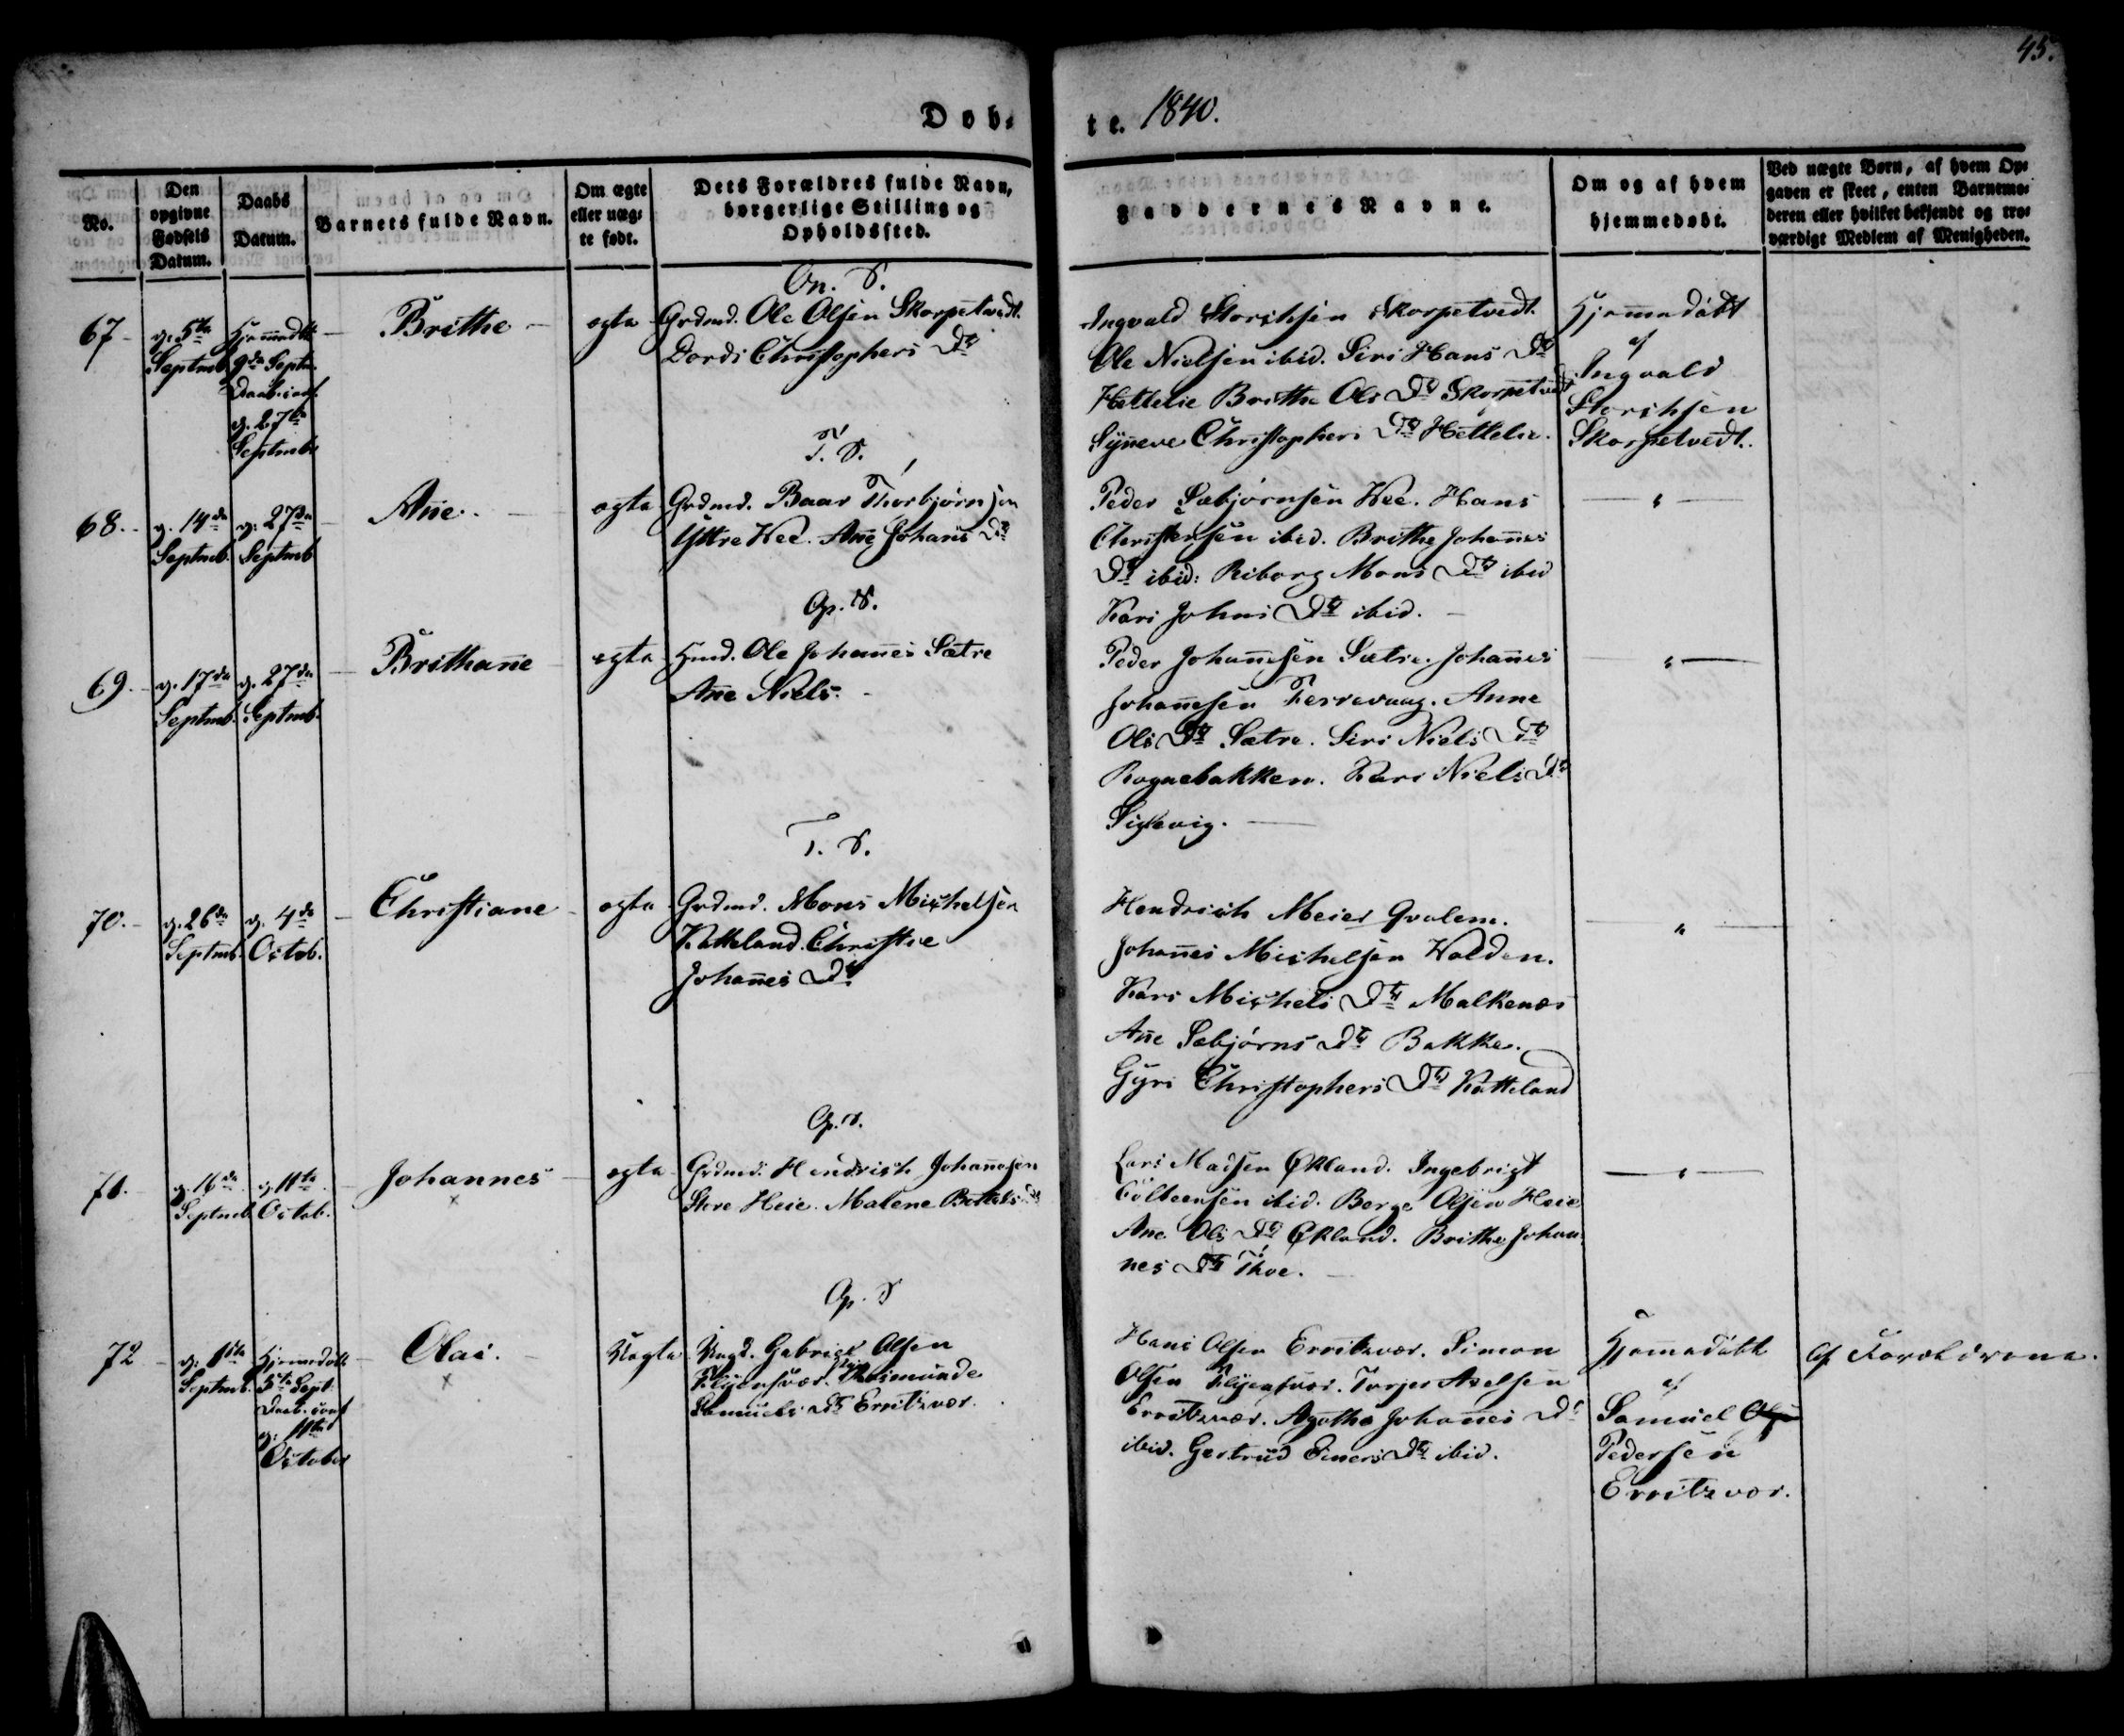 45.
Døb-
te. 1840.
No.
Den
opgivne
Fødsels
Datum.
Daabs
Datum.
Barnets fulde Navn.
Om ægte
eller uæg-
te født.
Dets Forældres fulde Navn,
borgerlige Stilling og
Opholdssted.
Faddernes Navne.
Om og af hvem
hjemmedøbt.
Ved uægte Børn, af hvem Op-
gaven er skeet, enten Barnemo-
deren eller hvilket bekjendt og tro-
værdigt Medlem af Menigheden.
67
d. 5te
Septmb.
Hjemmedøbt
9de Septm.
Daab. conf.
d. 27de
Septmb
Brithe
ægte
Grdmd. Ole Olsen Skorpetvedt.
Dordi Christophers Dtr
Ingvald Storchsen Skorpetvedt.
Ole Nielsen ibid. Siri Hans Dtr
Hettelie Brithe Ols Dtr Skorpetvedt
Synneve Christophers Dtr Hettelie.
Hjemmedøbt
af
Ingvald
Storchsen
Skorpetvedt.
T. S.
68.
d. 14de
Septmb.
d. 27de
Septmb
Anne.
ægte
Grdmd. Baar Thorbjørnsen
Yttre Hee. Anne Johans Dtr
Peder Sæbjørnsen Hee. Hans
Christensen ibid. Brithe Johannes
Dtr ibid: Riborg Mons Dtr ibid
Kari Johns Dtr ibid.
"
69.
d. 17de
Septmb.
d. 27de
Septmb.
Brithanne
ægte
Hmd. Ole Johannes Sætre
Anne Niels.
Peder Johannesen Sætre. Johannes
Johannesen Terrevaag. Anne
Ols Dtr Sætre. Siri Niels Dtr
Rognebakken. Kari Niels Dtr
Siglevig.
"
T. S.
70.
d. 26de
Septmb.
d. 4de
Octob.
Christiane
ægte
Grdmd. Mons Michelsen
Katteland. Christie
Johannes Dtr
Hendrich Meier Qvalem.
Johannes Michelsen Holden.
Kari Michels Dtr Malkenæs
Anne Sæbjørns Dtr Bakke.
Gyri Christophers Dtr Katteland
"
71.
d. 16de
Septmb
d. 11te
Octob.
Johannes
×
ægte
Grdmd. Hendrich Johannesen
Store Heie. Malene Dtr
Lars Madsen Økland. Ingebrigt
ibid. Berge Olsen Heie
Anne Ols Dtr Økland. Brithe Johan
nes Dtr Thoe.
"
72
d. 1ste
Septmb.
Hjemmedøbt
5te Sept.
Daab. conf
d: 11te
October
Olai.
×
Uægte
Ungd. Gabriel Olsen
Samuels Dtr Erritzvær.
Hans Olsen Erritzvær. Simon
Olsen Torjer Axelsen
Erritzvær. Agatha Johannes Dtr
ibid. Gertrud Einers Dtr ibid.
Hjemmedøbt
af
Samuel
Pedersen
Erritzvær.
Af Forældrene.